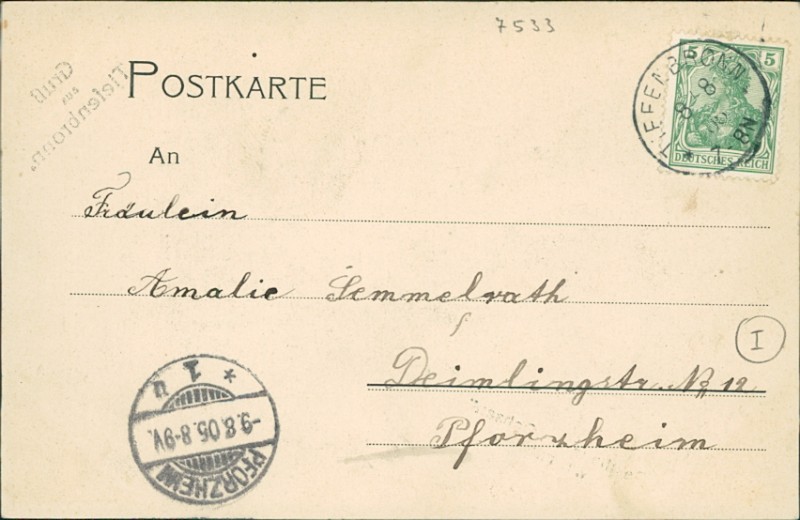 7533
Gruß
aus
Tiefenbronn.
POSTKARTE
TIEFENBRONN
5 5
DEUTSCHES REICH
An
Fräulein
Amalie Semmelrath
I
Deimlingstr. No 12
Pforzheim
* 1 n
-9.8.05.8-9V.
PFORZHEIM